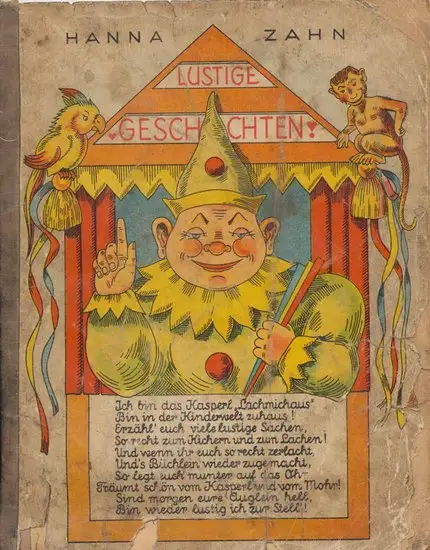 HANNA ZAHN
LUSTIGE
GESCHICHTEN!
Ich bin das Kasperl „Lachmichaus"
Bin in der Kinderwelt zuhaus!
Erzähl' euch viele lustige Sachen,
So recht zum Kichern und zum Lachen!
Und wenn ihr euch so recht zerlacht,
Und's Büchlein wieder zugemacht,
So legt euch munter auf das Oh-
Träumt schön vom Kasperl und vom Mohr!
Sind morgen eure Äuglein hell,
Bin wieder lustig ich zur Stell'!